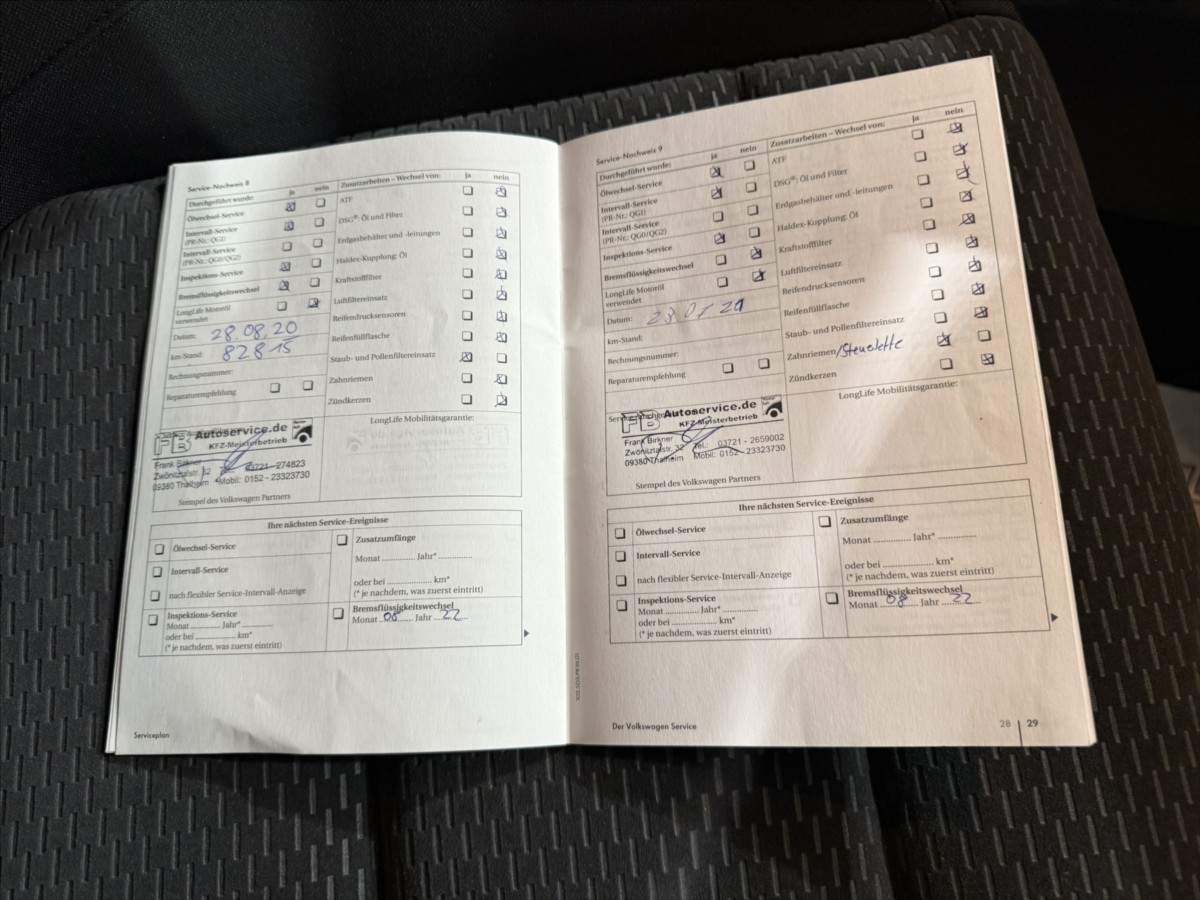 Service-Nachweis 8
Durchgeführt wurde: ja nein
Ölwechsel-Service
Intervall-Service
(PR-Nr.: QG1)
Intervall-Service
(PR-Nr.: QG0/QG2)
Inspektions-Service
Bremsflüssigkeitswechsel
LongLife Motoröl
verwendet
Datum: 28.08.20
km-Stand: 82815
Rechnungsnummer:
Reparaturempfehlung
Zusatzarbeiten – Wechsel von: ja nein
ATF
DSG®: Öl und Filter
Erdgasbehälter und -leitungen
Haldex-Kupplung: Öl
Kraftstofffilter
Luftfiltereinsatz
Reifendrucksensoren
Reifenfüllflasche
Staub- und Pollenfiltereinsatz
Zahnriemen
Zündkerzen
LongLife Mobilitätsgarantie:
FB Autoservice.de
KFZ-Meisterbetrieb
Frank Birkner
Zwönitztalstr. 32 Tel.: 03721 - 274823
09380 Thalheim Mobil: 0152 - 23323730
Stempel des Volkswagen Partners
Ihre nächsten Service-Ereignisse
Ölwechsel-Service
Intervall-Service
nach flexibler Service-Intervall-Anzeige
Inspektions-Service
Monat ............ Jahr* ..............
oder bei ...................... km*
(* je nachdem, was zuerst eintritt)
Zusatzumfänge
Monat ............ Jahr* ..............
oder bei ...................... km*
(* je nachdem, was zuerst eintritt)
Bremsflüssigkeitswechsel
Monat 08 Jahr 22
Serviceplan
Service-Nachweis 9
Durchgeführt wurde: ja nein
Ölwechsel-Service
Intervall-Service
(PR-Nr.: QG1)
Intervall-Service
(PR-Nr.: QG0/QG2)
Inspektions-Service
Bremsflüssigkeitswechsel
LongLife Motoröl
verwendet
Datum:
km-Stand:
Rechnungsnummer:
Reparaturempfehlung
Zusatzarbeiten – Wechsel von: ja nein
ATF
DSG®: Öl und Filter
Erdgasbehälter und -leitungen
Haldex-Kupplung: Öl
Kraftstofffilter
Luftfiltereinsatz
Reifendrucksensoren
Reifenfüllflasche
Staub- und Pollenfiltereinsatz
Zahnriemen/Steuerkette
Zündkerzen
LongLife Mobilitätsgarantie:
FB Autoservice.de
KFZ-Meisterbetrieb
Frank Birkner
Zwönitztalstr. 32 Tel.: 03721 - 2659002
09380 Thalheim Mobil: 0152 - 23323730
Stempel des Volkswagen Partners
Ihre nächsten Service-Ereignisse
Ölwechsel-Service
Intervall-Service
nach flexibler Service-Intervall-Anzeige
Inspektions-Service
Monat ............ Jahr* ..............
oder bei ...................... km*
(* je nachdem, was zuerst eintritt)
Zusatzumfänge
Monat ............ Jahr* ..............
oder bei ...................... km*
(* je nachdem, was zuerst eintritt)
Bremsflüssigkeitswechsel
Monat 08 Jahr 22
Der Volkswagen Service
28 | 29